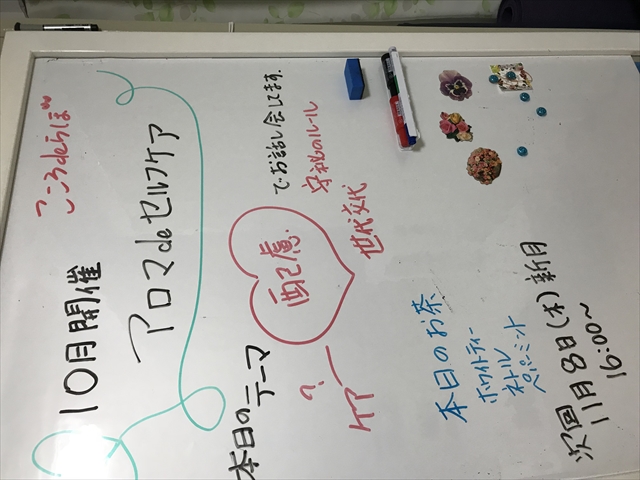 こころdeらぼ
10月開催
アロマdeセルフケア
本日の
テーマ
配慮.
でお話し会してます.
守秘のルール
?
ケアー
世代交代
本日のお茶
ホワイトティー
ネトル
ペパーミント
次回
11月8日(木)新月
16:00~